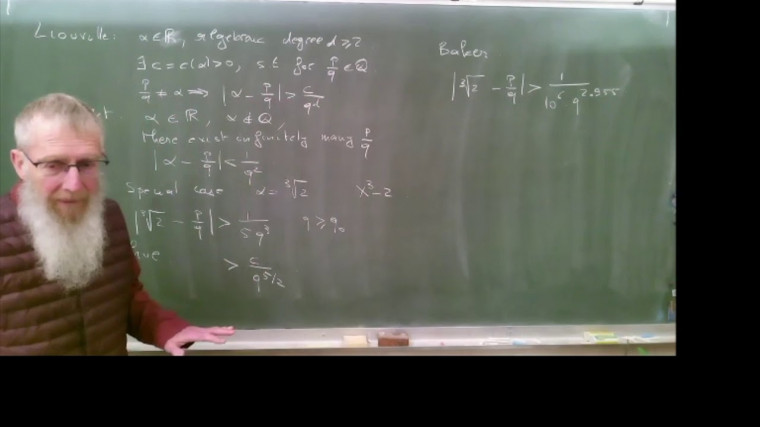 Liouville: α ∈ ℝ, algebraic degree d ≥ 2
∃ c = c(α) > 0, s.t for p/q ∈ ℚ
p/q ≠ α ⟹ |α − p/q| > c/q^d
α ∈ ℝ, α ∉ ℚ
There exist infinitely many p/q
|α − p/q| < 1/q²
Special case α = ∛2 X³ − 2
|∛2 − p/q| > 1/5q³ q ≥ q₀
> c/q^5/2
Baker
|∛2 − p/q| > 1/10⁶ q^2.955